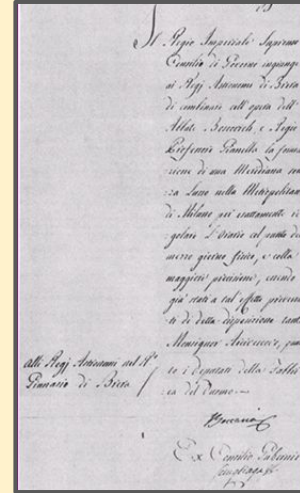 Il Regio Imperiale Supremo
Consilio di Governo ingiunge
ai Regj Astronomi di Brera
di combinare coll'opera dell'
Abbate e Regio
Professore la forma
:zione di una Meridiana sen
:za Lusso nella Metropolitan
di Milano per esattamente re
:golare l'Orario col punto de
mezzo giorno fisico, e colla
maggiore precisione, essendo
già stati a tal effetto preven
:ti di detta disposizione tant
Monsignor Arcivescovo, quan
:to i Deputati della Fabbri
:ca del Duomo.—
alli Regj Astronomi nel R.º
Ginnasio di Brera
Ex Consilio Gubernii